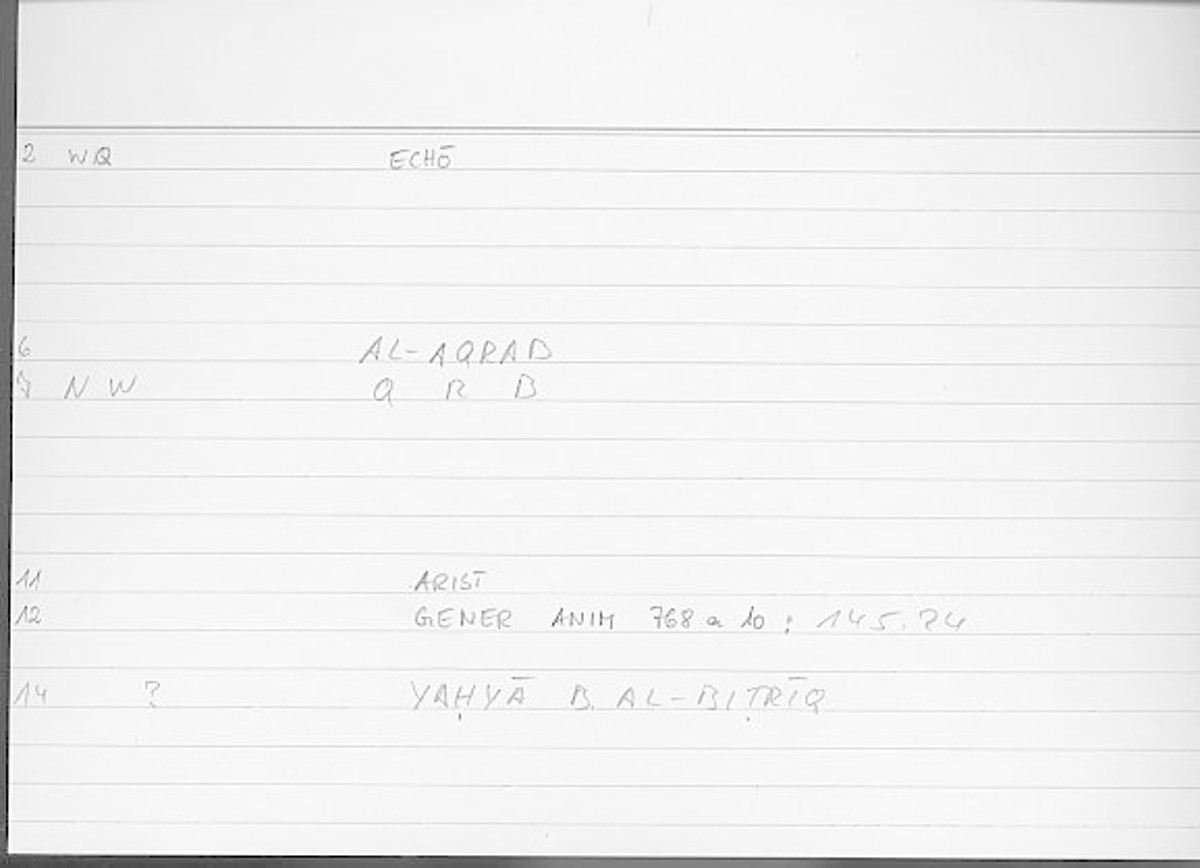 2 WQ ECHŌ
6 AL-AQRAB
7 N W Q R B
11 ARIST
12 GENER ANIM 768 a 10 : 145.24
14 ? YAḤYĀ B. AL-BIṬRĪQ